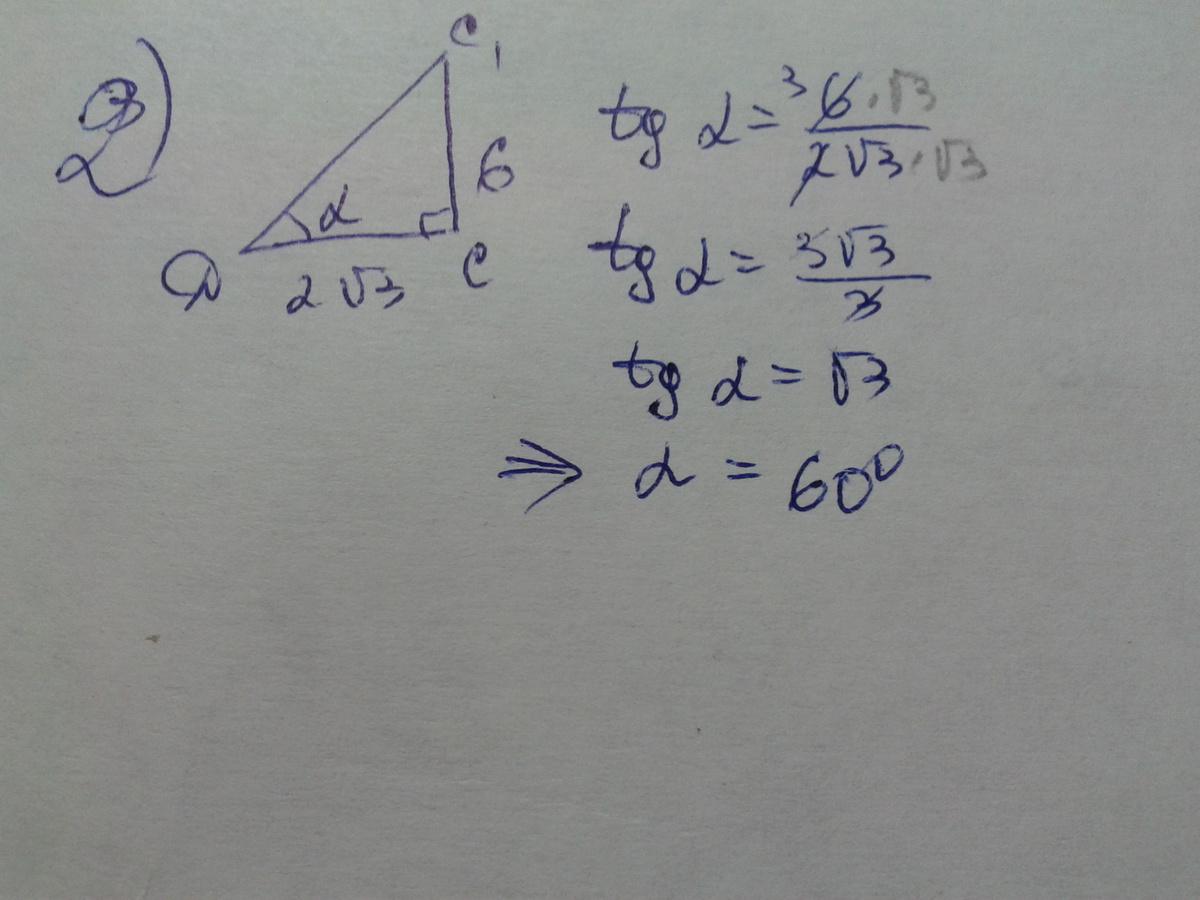 2)
C₁
6
α
D
2√3
C
tg α = ³6·√3 / 2√3·√3
tg α = 3√3 / 3
tg α = √3
⇒ α = 60⁰